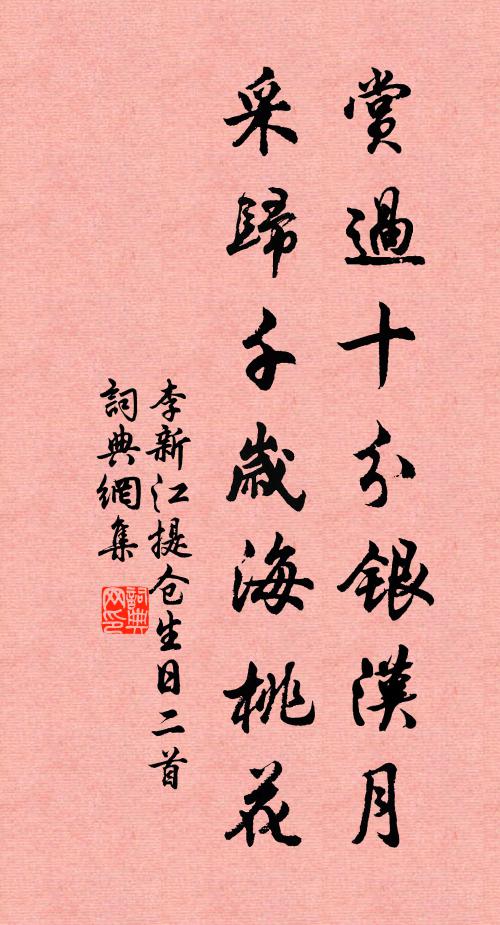 賞過十分銀漢月
采歸千歲海桃花
李新江提仓生日二首
詞典網集
詞典网印